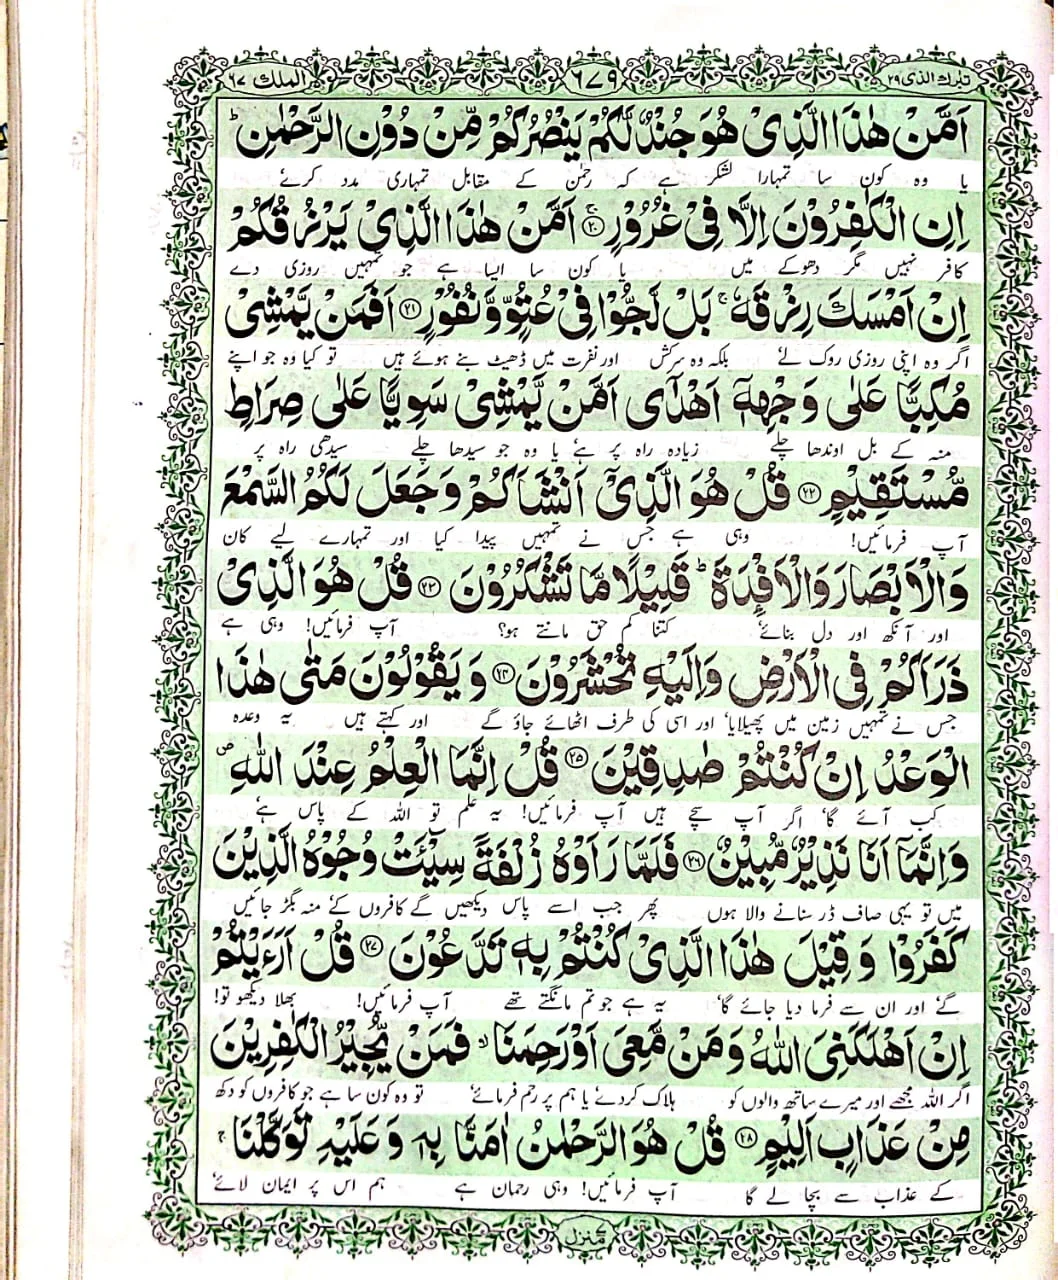 تبٰرك الذی ٢٩ ٦٧٩ الملك ٦٧
اَمَّنْ هٰذَا الَّذِیْ هُوَ جُنْدٌ لَّكُمْ یَنْصُرُكُمْ مِّنْ دُوْنِ الرَّحْمٰنِ ؕ
یا وہ کون سا تمہارا لشکر ہے کہ رحمٰن کے مقابل تمہاری مدد کرے
اِنِ الْكٰفِرُوْنَ اِلَّا فِیْ غُرُوْرٍ ۚ‏﴿۲۰﴾ اَمَّنْ هٰذَا الَّذِیْ یَرْزُقُكُمْ
کافر نہیں مگر دھوکے میں یا کون سا ایسا ہے جو تمہیں روزی دے
اِنْ اَمْسَكَ رِزْقَهٗ ۚ بَلْ لَّجُّوْا فِیْ عُتُوٍّ وَّ نُفُوْرٍ ﴿۲۱﴾ اَفَمَنْ یَّمْشِیْ
اگر وہ اپنی روزی روک لے بلکہ وہ سرکش اور نفرت میں ڈھیٹ بنے ہوئے ہیں تو کیا وہ جو اپنے
مُكِبًّا عَلٰی وَجْهِهٖۤ اَهْدٰۤی اَمَّنْ یَّمْشِیْ سَوِیًّا عَلٰی صِرَاطٍ
منہ کے بل اوندھا چلے زیادہ راہ پر ہے یا وہ جو سیدھا چلے سیدھی راہ پر
مُّسْتَقِیْمٍ ﴿۲۲﴾ قُلْ هُوَ الَّذِیْۤ اَنْشَاَكُمْ وَ جَعَلَ لَكُمُ السَّمْعَ
آپ فرمائیں! وہی ہے جس نے تمہیں پیدا کیا اور تمہارے لیے کان
وَ الْاَبْصَارَ وَ الْاَفْـِٕدَةَ ؕ قَلِیْلًا مَّا تَشْكُرُوْنَ ﴿۲۳﴾ قُلْ هُوَ الَّذِیْ
اور آنکھ اور دل بنائے کتنا کم حق مانتے ہو؟ آپ فرمائیں! وہی ہے
ذَرَاَكُمْ فِی الْاَرْضِ وَ اِلَیْهِ تُحْشَرُوْنَ ﴿۲۴﴾ وَ یَقُوْلُوْنَ مَتٰی هٰذَا
جس نے تمہیں زمین میں پھیلایا، اور اسی کی طرف اٹھائے جاؤ گے اور کہتے ہیں یہ وعدہ
الْوَعْدُ اِنْ كُنْتُمْ صٰدِقِیْنَ ﴿۲۵﴾ قُلْ اِنَّمَا الْعِلْمُ عِنْدَ اللّٰهِ ۪
کب آئے گا، اگر آپ سچے ہیں آپ فرمائیں! یہ علم تو اللہ کے پاس ہے،
وَ اِنَّمَاۤ اَنَا نَذِیْرٌ مُّبِیْنٌ ﴿۲۶﴾ فَلَمَّا رَاَوْهُ زُلْفَةً سِیْٓـَٔتْ وُجُوْهُ الَّذِیْنَ
میں تو یہی صاف ڈر سنانے والا ہوں پھر جب اسے پاس دیکھیں گے کافروں کے منہ بگڑ جائیں
كَفَرُوْا وَ قِیْلَ هٰذَا الَّذِیْ كُنْتُمْ بِهٖ تَدَّعُوْنَ ﴿۲۷﴾ قُلْ اَرَءَیْتُمْ
گے، اور ان سے فرما دیا جائے گا، یہ ہے جو تم مانگتے تھے آپ فرمائیں! بھلا دیکھو تو!
اِنْ اَهْلَكَنِیَ اللّٰهُ وَ مَنْ مَّعِیَ اَوْ رَحِمَنَا ۙ فَمَنْ یُّجِیْرُ الْكٰفِرِیْنَ
اگر اللہ مجھے اور میرے ساتھ والوں کو ہلاک کردے، یا ہم پر رحم فرمائے، تو وہ کون سا ہے جو کافروں کو دکھ
مِنْ عَذَابٍ اَلِیْمٍ ﴿۲۸﴾ قُلْ هُوَ الرَّحْمٰنُ اٰمَنَّا بِهٖ وَ عَلَیْهِ تَوَكَّلْنَا ۚ
کے عذاب سے بچا لے گا آپ فرمائیں! وہی رحمان ہے ہم اس پر ایمان لائے،
منزل ۷